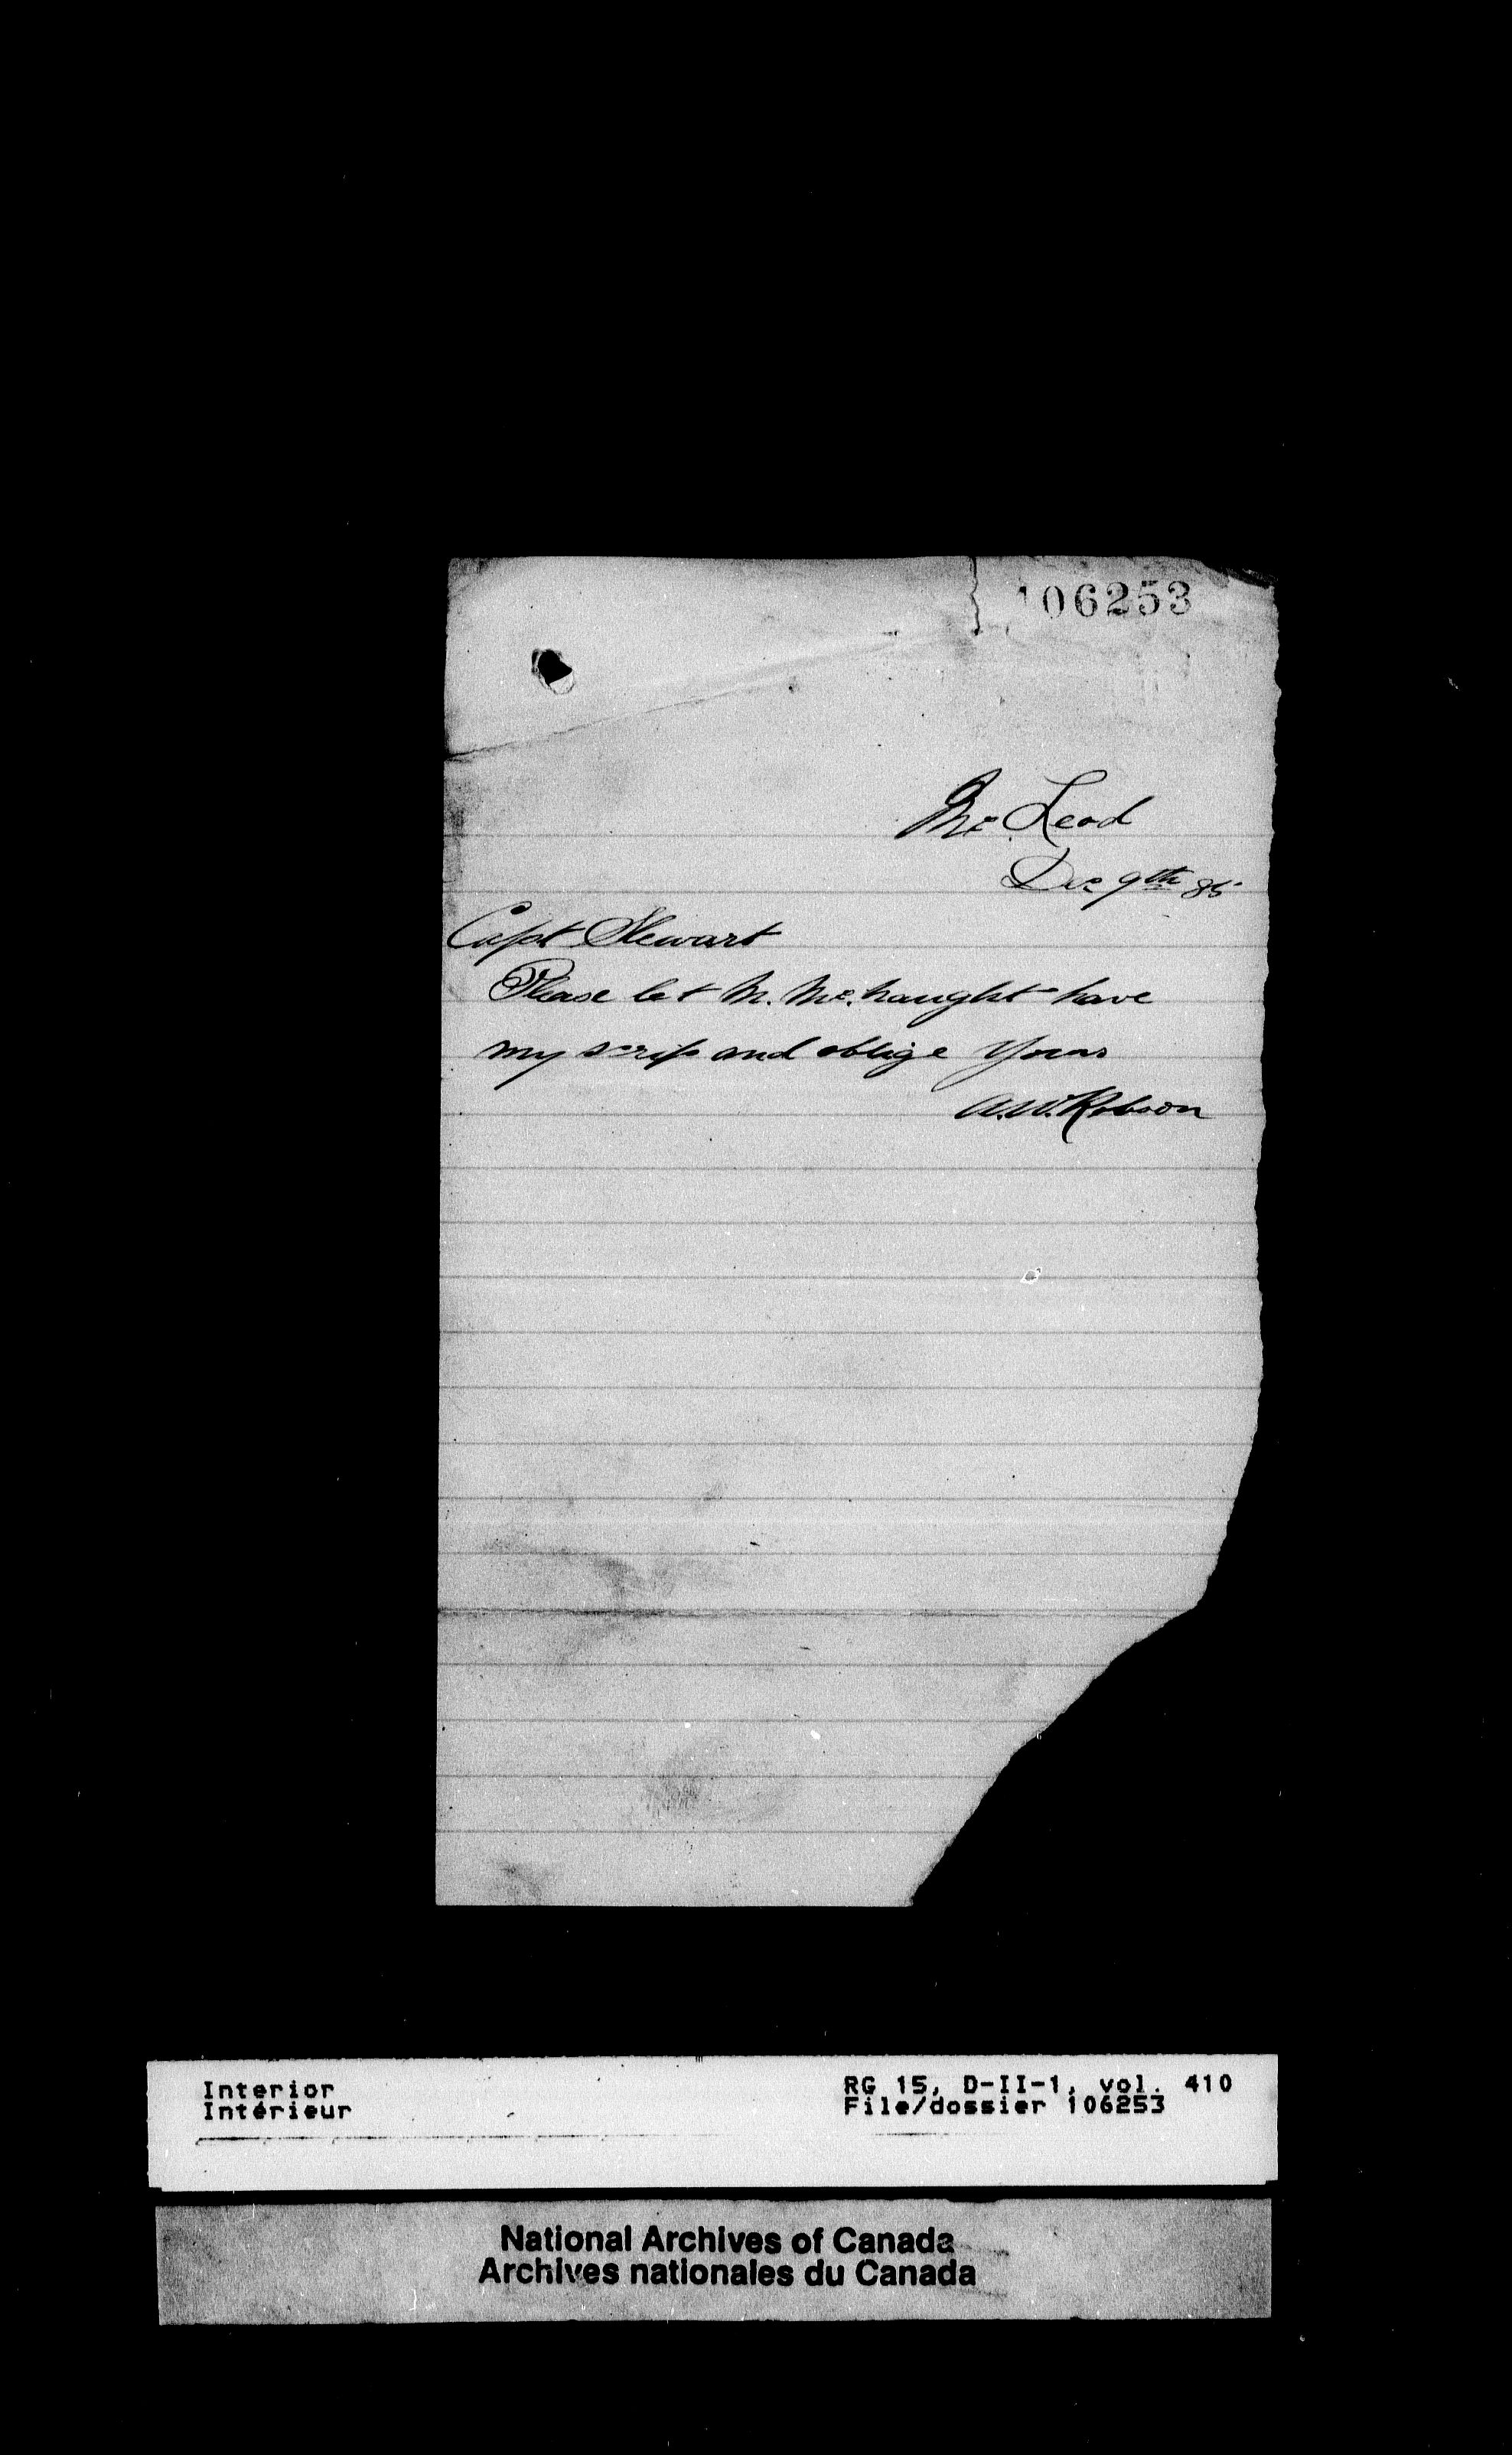 106253
Mc Leod
Dec 9th 85
Capt Stewart
Please let M. McNaught have
my scrip and oblige Yours
A.W. Robson
Interior
Intérieur
RG 15, D-II-1, vol. 410
File/dossier 106253
National Archives of Canada
Archives nationales du Canada